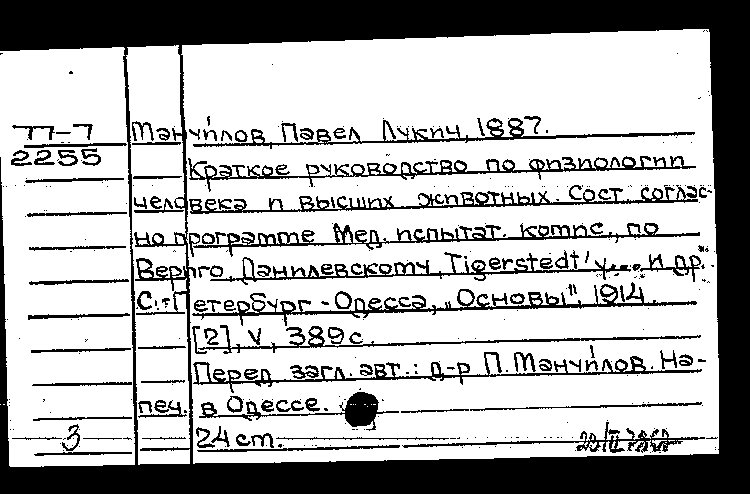 77-7 Мануйлов, Павел Лукич, 1887.
2255 Краткое руководство по физиологии
человека и высших животных. Сост. соглас-
но программе Мед. испытат. комис., по
Вериго, Данилевскому, Tigerstedt'у... и др.
С.-Петербург - Одесса, „Основы", 1914.
[2], V, 389 с.
Перед загл. авт.: д-р П. Мануйлов. На-
печ. в Одессе.
3 24 cm.